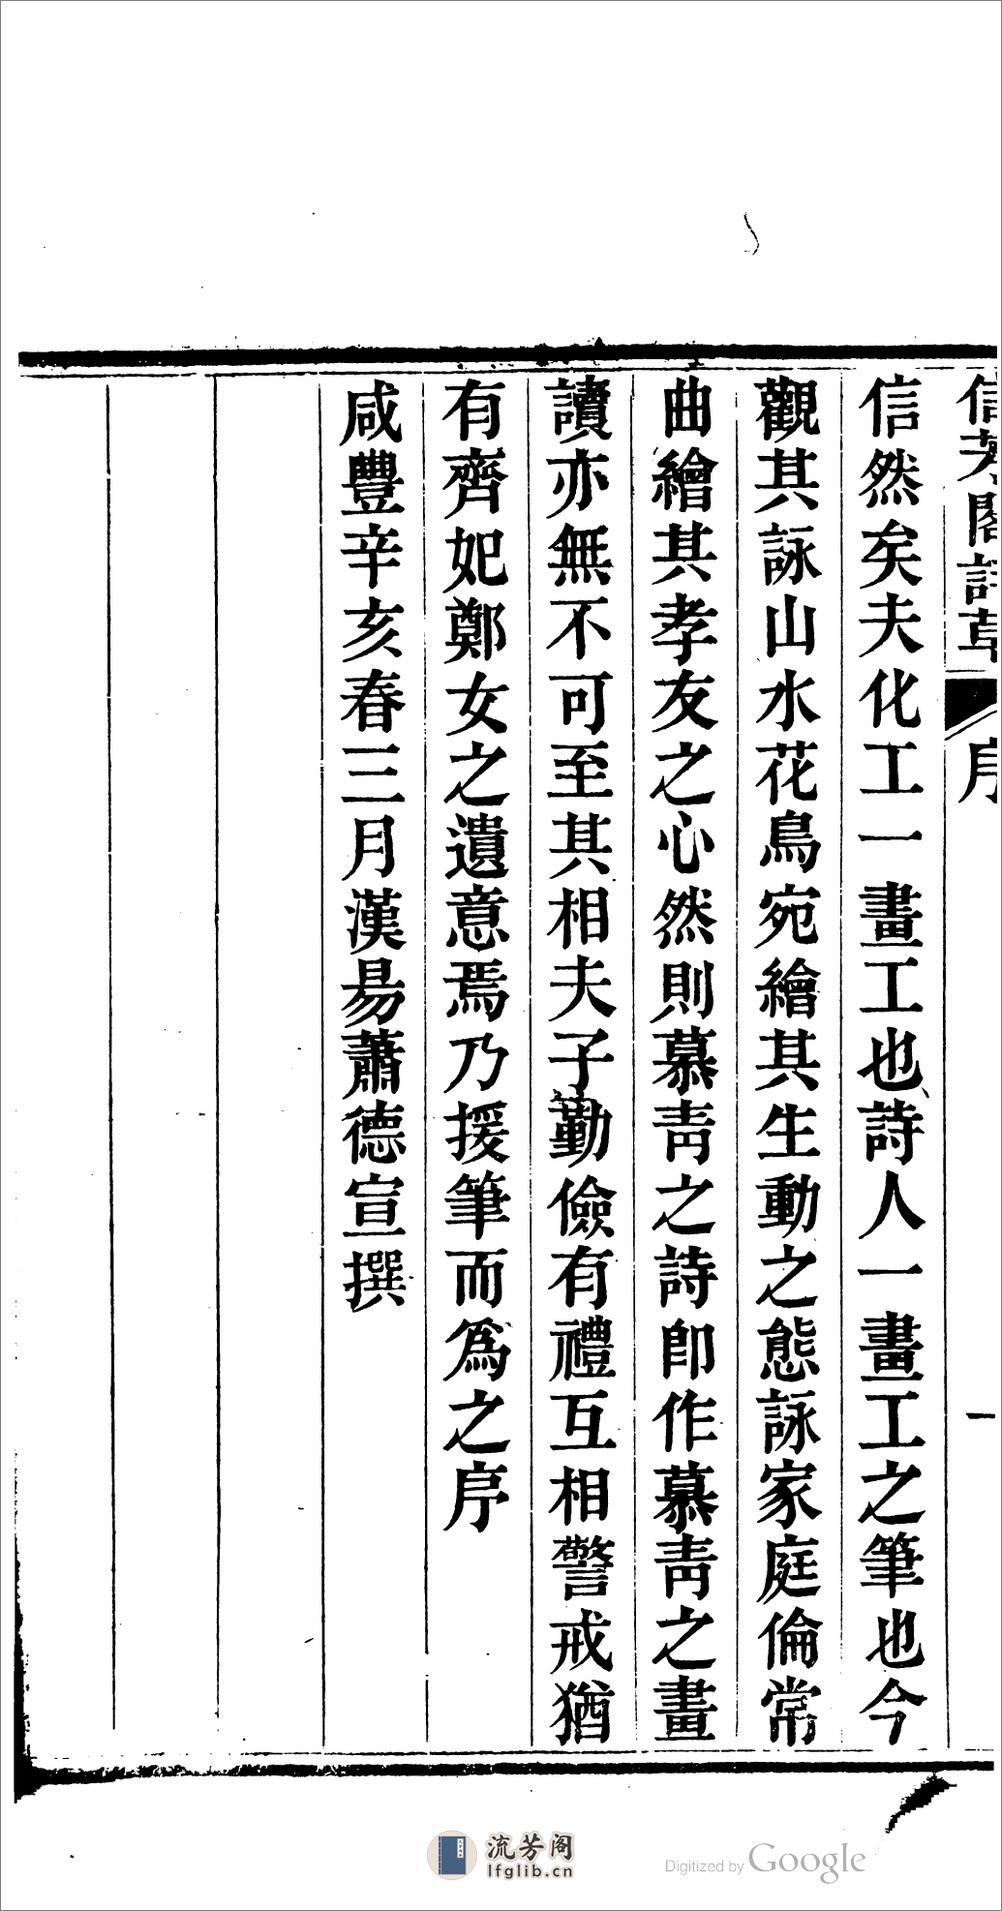 信芳閣詩草
序
一
信然矣夫化工一畫工也詩人一畫工之筆也今
觀其詠山水花鳥宛繪其生動之態詠家庭倫常
曲繪其孝友之心然則慕靑之詩卽作慕靑之畫
讀亦無不可至其相夫子勤儉有禮互相警戒猶
有齊妃鄭女之遺意焉乃援筆而爲之序
咸豐辛亥春三月漢昜蕭德宣撰
流芳阁
lfglib.cn
Digitized by Google